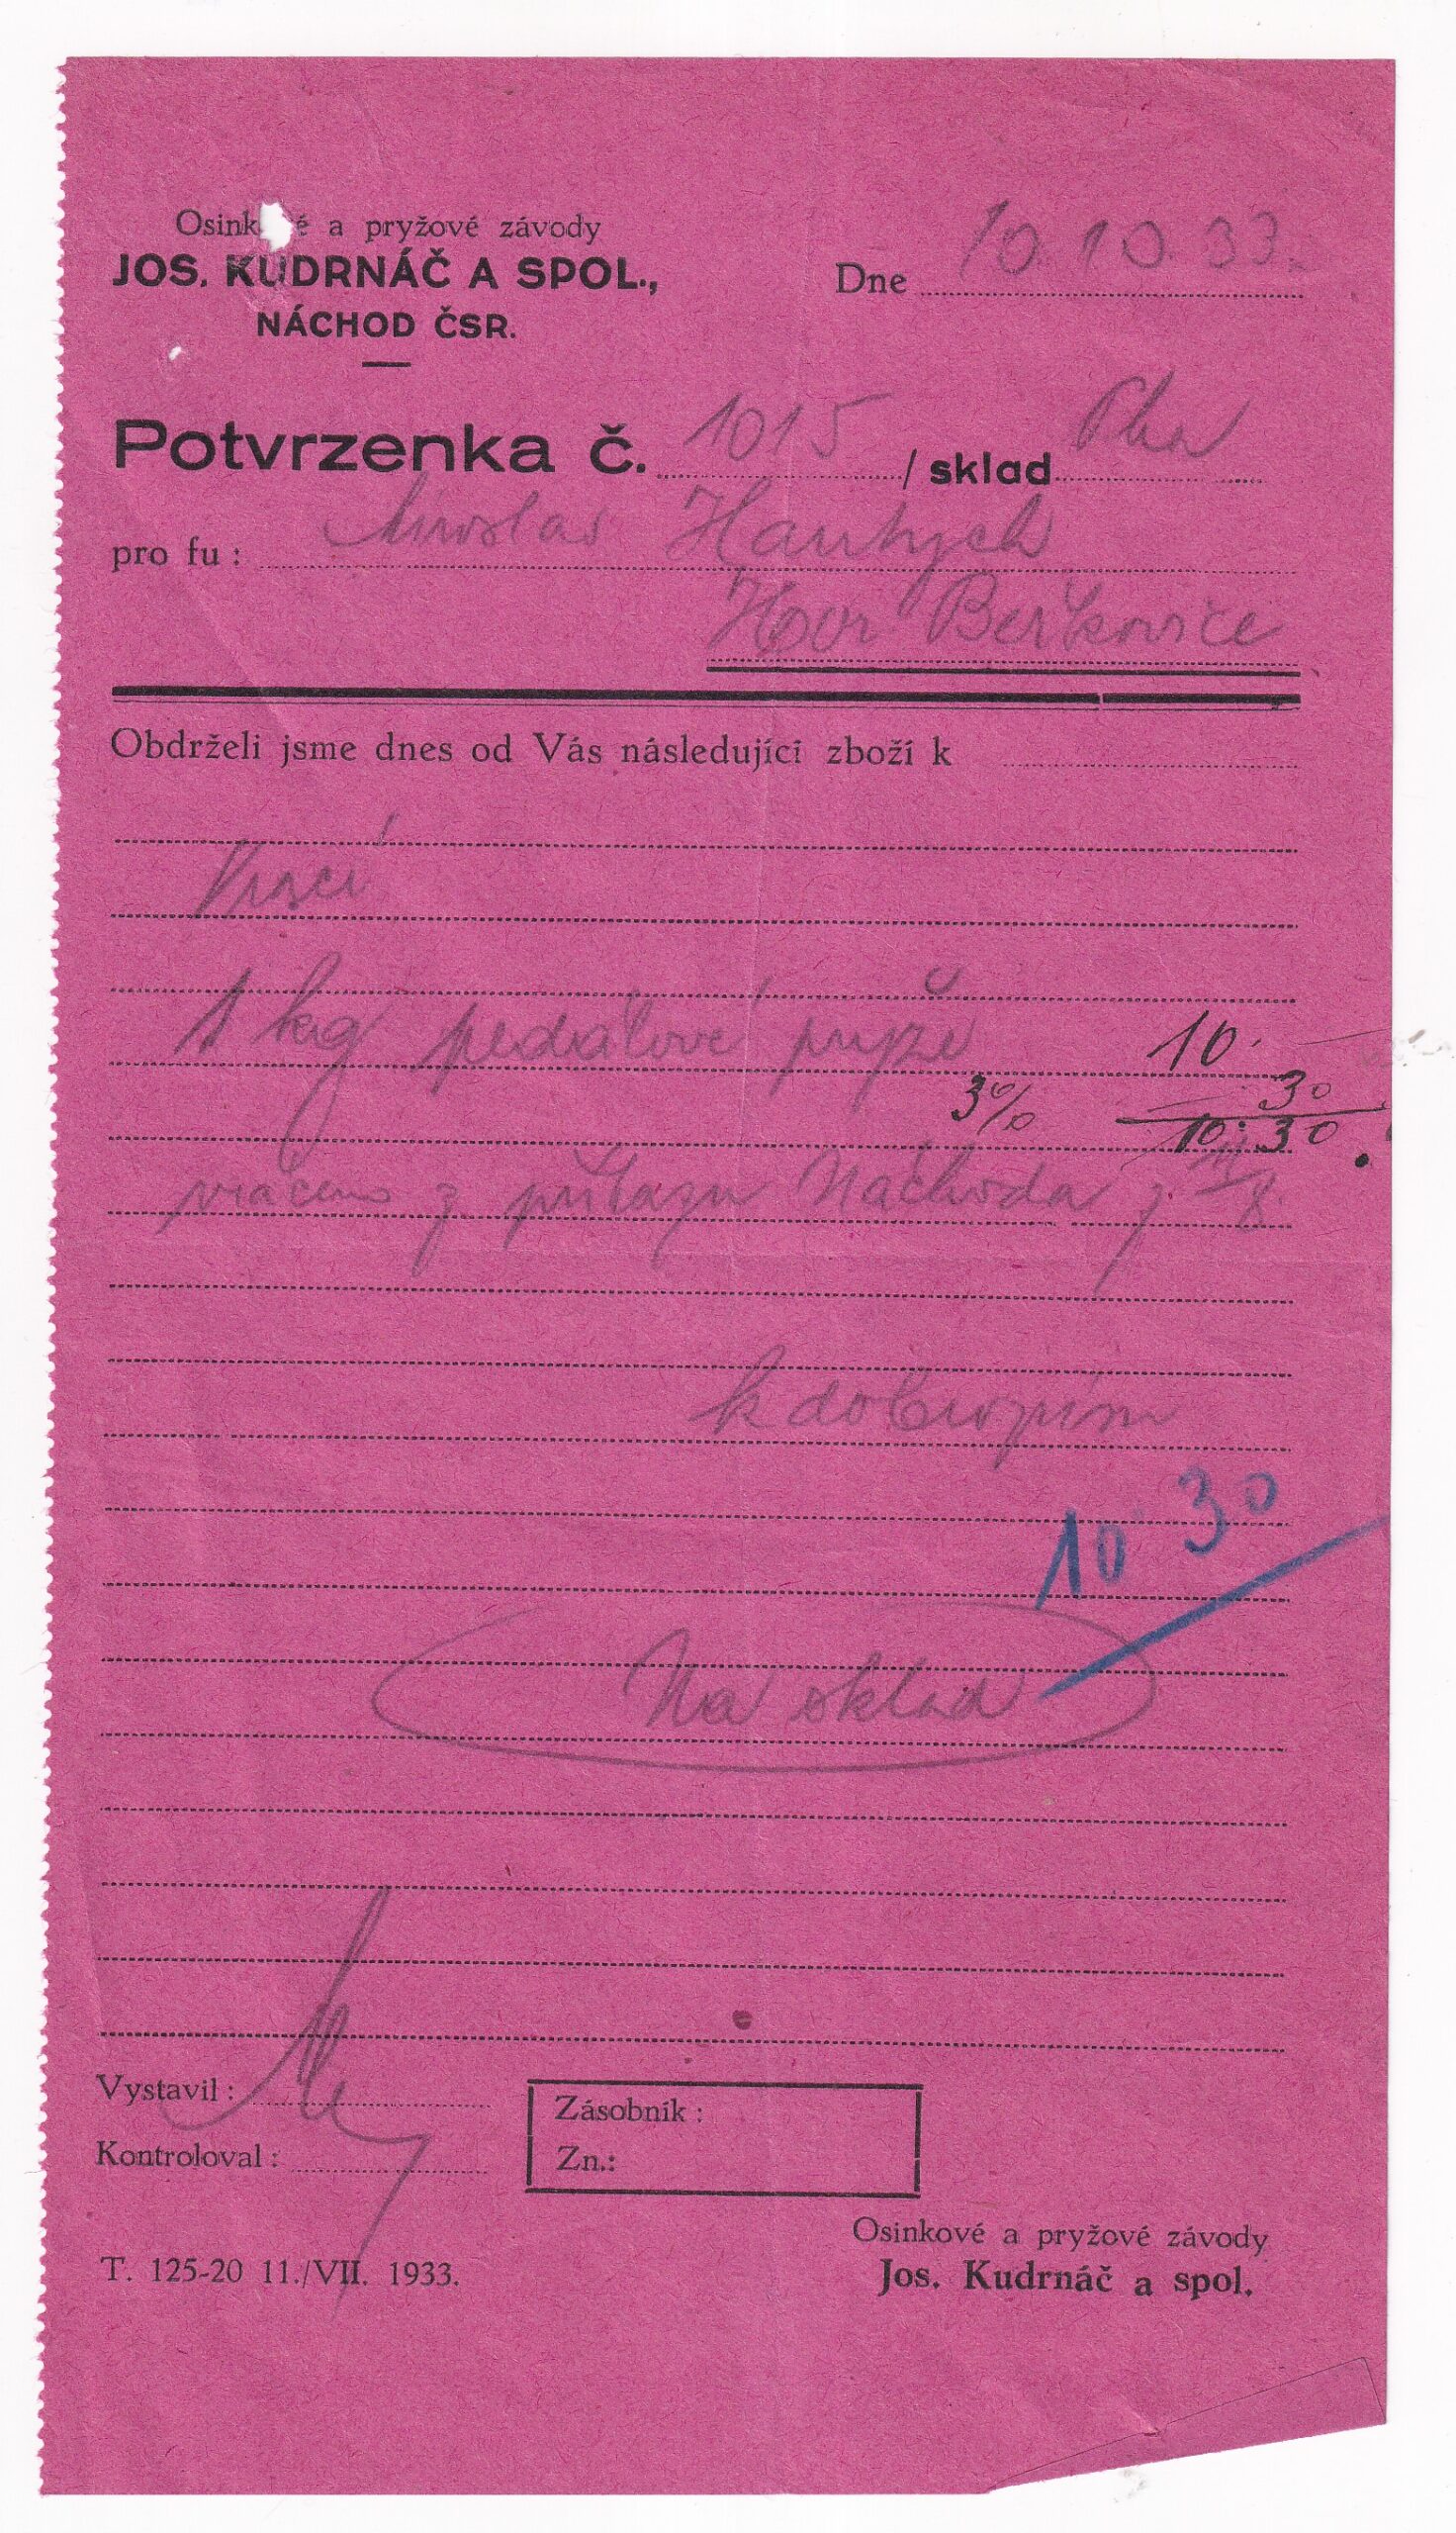 Osinkové a pryžové závody
JOS. KUDRNÁČ A SPOL.,
NÁCHOD ČSR.
Dne 10. 10. 33.
Potvrzenka č. 1015 / sklad Pha
pro fu: Miroslav
Hor Beřkovice
Obdrželi jsme dnes od Vás následující zboží k
Vrací
1 kg pedálové pryže 10.
3% 30
10.30
vráceno z příkazu Náchoda z 11/8
k dobropisu
10 30
Na sklad
Vystavil:
Kontroloval:
Zásobník:
Zn.:
T. 125-20 11./VII. 1933.
Osinkové a pryžové závody
Jos. Kudrnáč a spol.